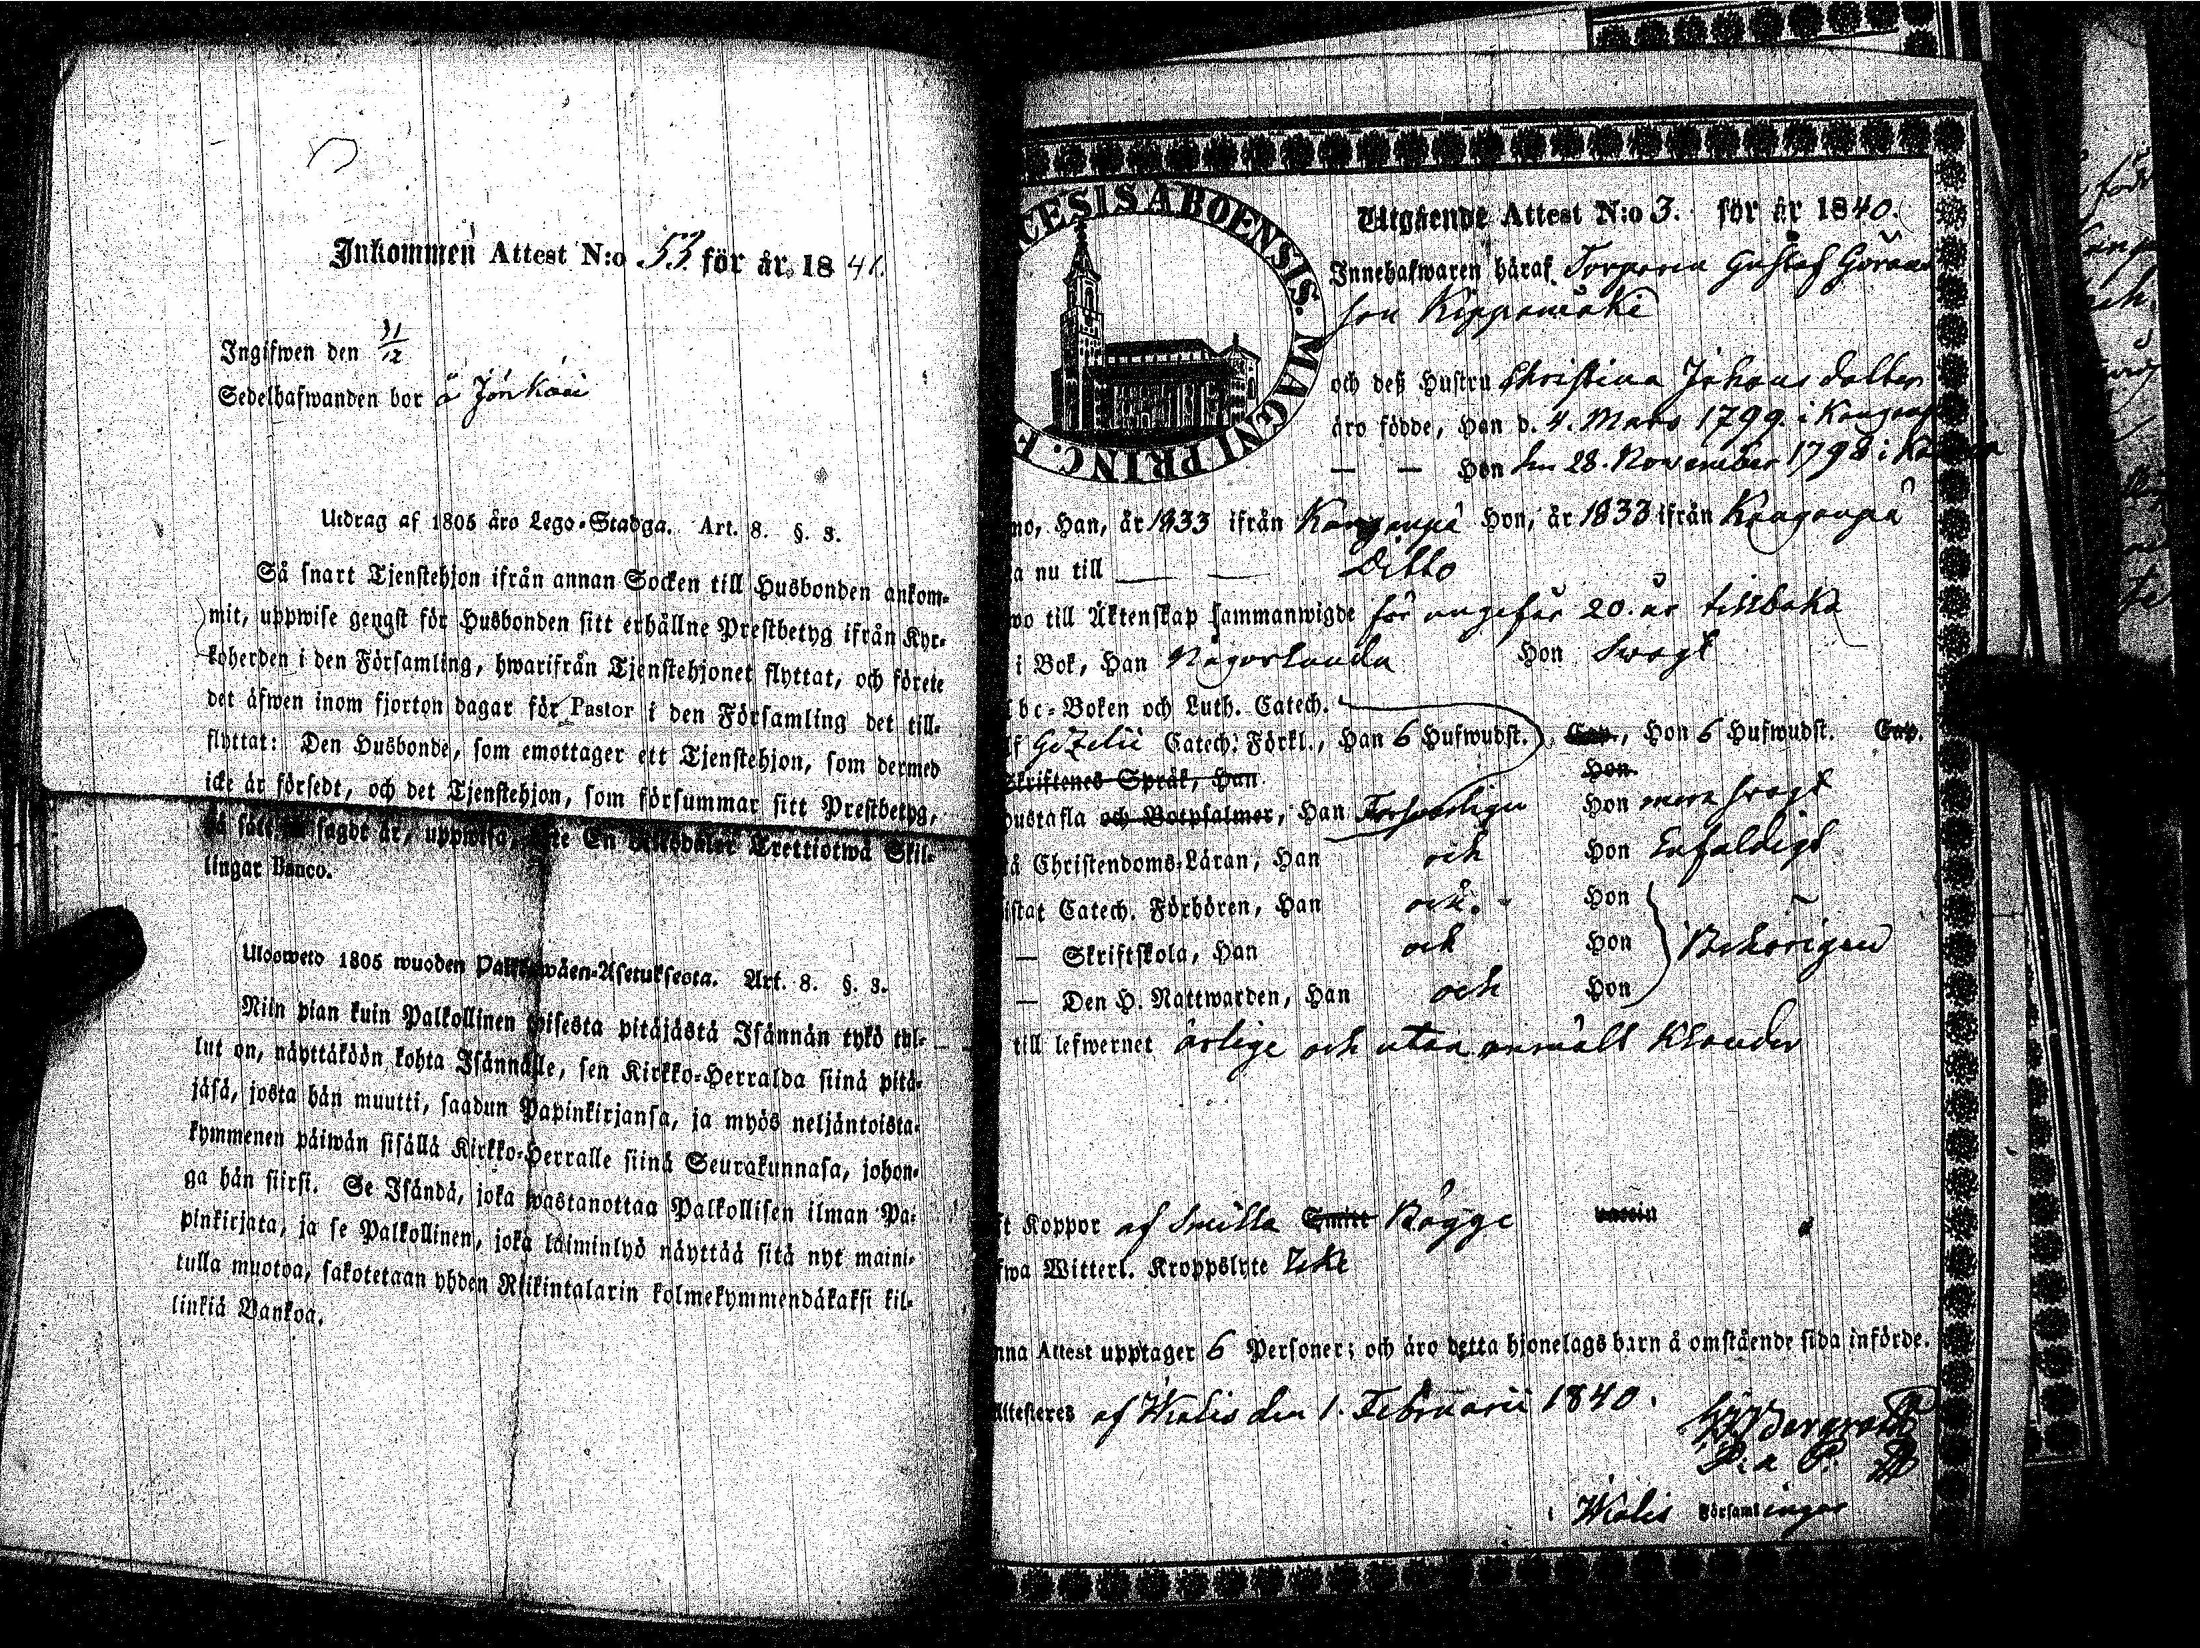 Inkommen Attest N:o 53 för år 1841.
Ingifwen den 31/12
Sedelhafwanden bor å Jönkäri
Utdrag af 1805 åro Lego-Stadga. Art. 8. §. 3.
Så snart Tjenstehjon ifrån annan Socken till Husbonden ankom-
mit, uppwise gengst för Husbonden sitt erhållne Prestbetyg ifrån Kyr-
koherden i den Församling, hwarifrån Tjenstehjonet flyttat, och förete
det äfwen inom fjorton dagar för Pastor i den Församling det till-
flyttat: Den Husbonde, som emottager ett Tjenstehjon, som dermed
icke är försedt, och det Tjenstehjon, som försummar sitt Prestbetyg,
så sagdt är, uppwisa, En Riksdaler Trettiotwå Skil-
lingar Banco.
Uloosweto 1805 wuoden Palkkawäen-Asetuksesta. Art. 8. §. 3.
Niin pian kuin Palkollinen toisesta pitäjästä Isännän tykö tul-
lut on, näyttäköön kohta Isännälle, sen Kirkko-Herralda siinä pitä-
jäsä, josta hän muutti, saadun Papinkirjansa, ja myös neljäntoista-
kymmenen päiwän sisällä Kirkko-Herralle siinä Seurakunnasa, johon-
ga hän siirsi. Se Isändä, joka wastanottaa Palkollisen ilman Pa-
pinkirjata, ja se Palkollinen, joka laiminlyö näyttää sitä nyt maini-
tulla muotoa, sakotetaan yhden Riikintalarin kolmekymmendäkaksi kil-
linkiä Bankoa.
CESIS ABOENSIS. MAGNI PRINC. F
Utgående Attest N:o 3. för år 1840.
Innehafwaren häraf Torparen Gustaf Görans
son Kippomäki
och deß Hustru Christina Johans dotter
äro födde, Han d. 4. Mars 1799. i
— — Hon den 28. November 1798 i
mo, Han, år 1833 ifrån Kangonpä Hon, år 1833 ifrån Kangonpä
a nu till — — Ditto
wo till Äktenskap sammanwigde för ungefär 20. år tillbaka
i Bok, Han Någorlunda Hon Swagt
bc-Boken och Luth. Catech.
f Gezelii Catech. Förkl., Han 6 Hufwudst. Cap., Hon 6 Hufwudst. Cap.
Skriftenes Språk, Han Hon
hustafla och Botpsalmer, Han Försvarligen Hon mera swagt
å Christendoms-Läran, Han och Hon Enfaldigt
istat Catech. Förhören, Han och Hon
— Skriftskola, Han och Hon Behörigen
— Den H. Nattwarden, Han och Hon
till lefwernet ärlige och utan anmält Klander
ft Koppor af Smitta Smitt Bägge vaccin
fwa Witterl. Kroppslyte Icke
nna Attest upptager 6 Personer; och äro detta hjonelags barn å omstående sida införde.
Attesteres af Walis den 1. Februarii 1840.
P. a P.
i Walis Församlingar